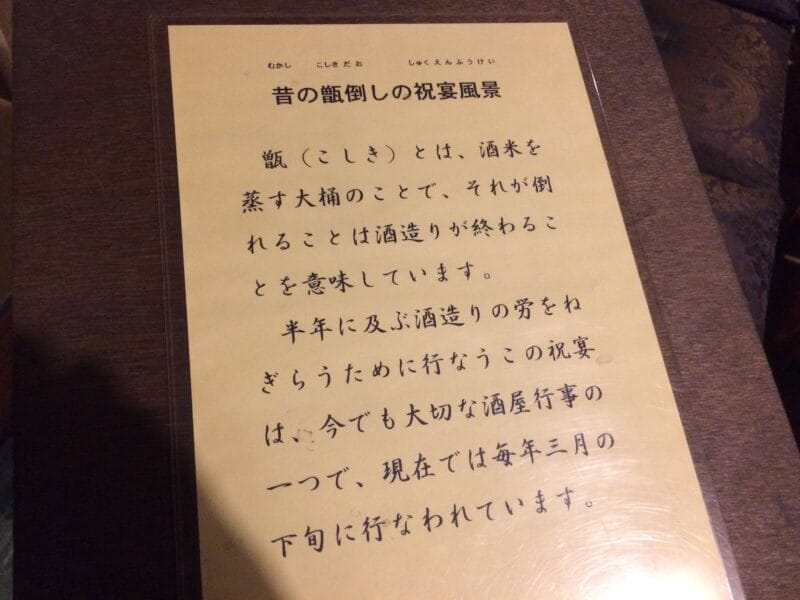 むかし こしきだお しゅくえんふうけい
昔の甑倒しの祝宴風景
甑（こしき）とは、酒米を
蒸す大桶のことで、それが倒
れることは酒造りが終わるこ
とを意味しています。
半年に及ぶ酒造りの労をね
ぎらうために行なうこの祝宴
は、今でも大切な酒屋行事の
一つで、現在では毎年三月の
下旬に行なわれています。